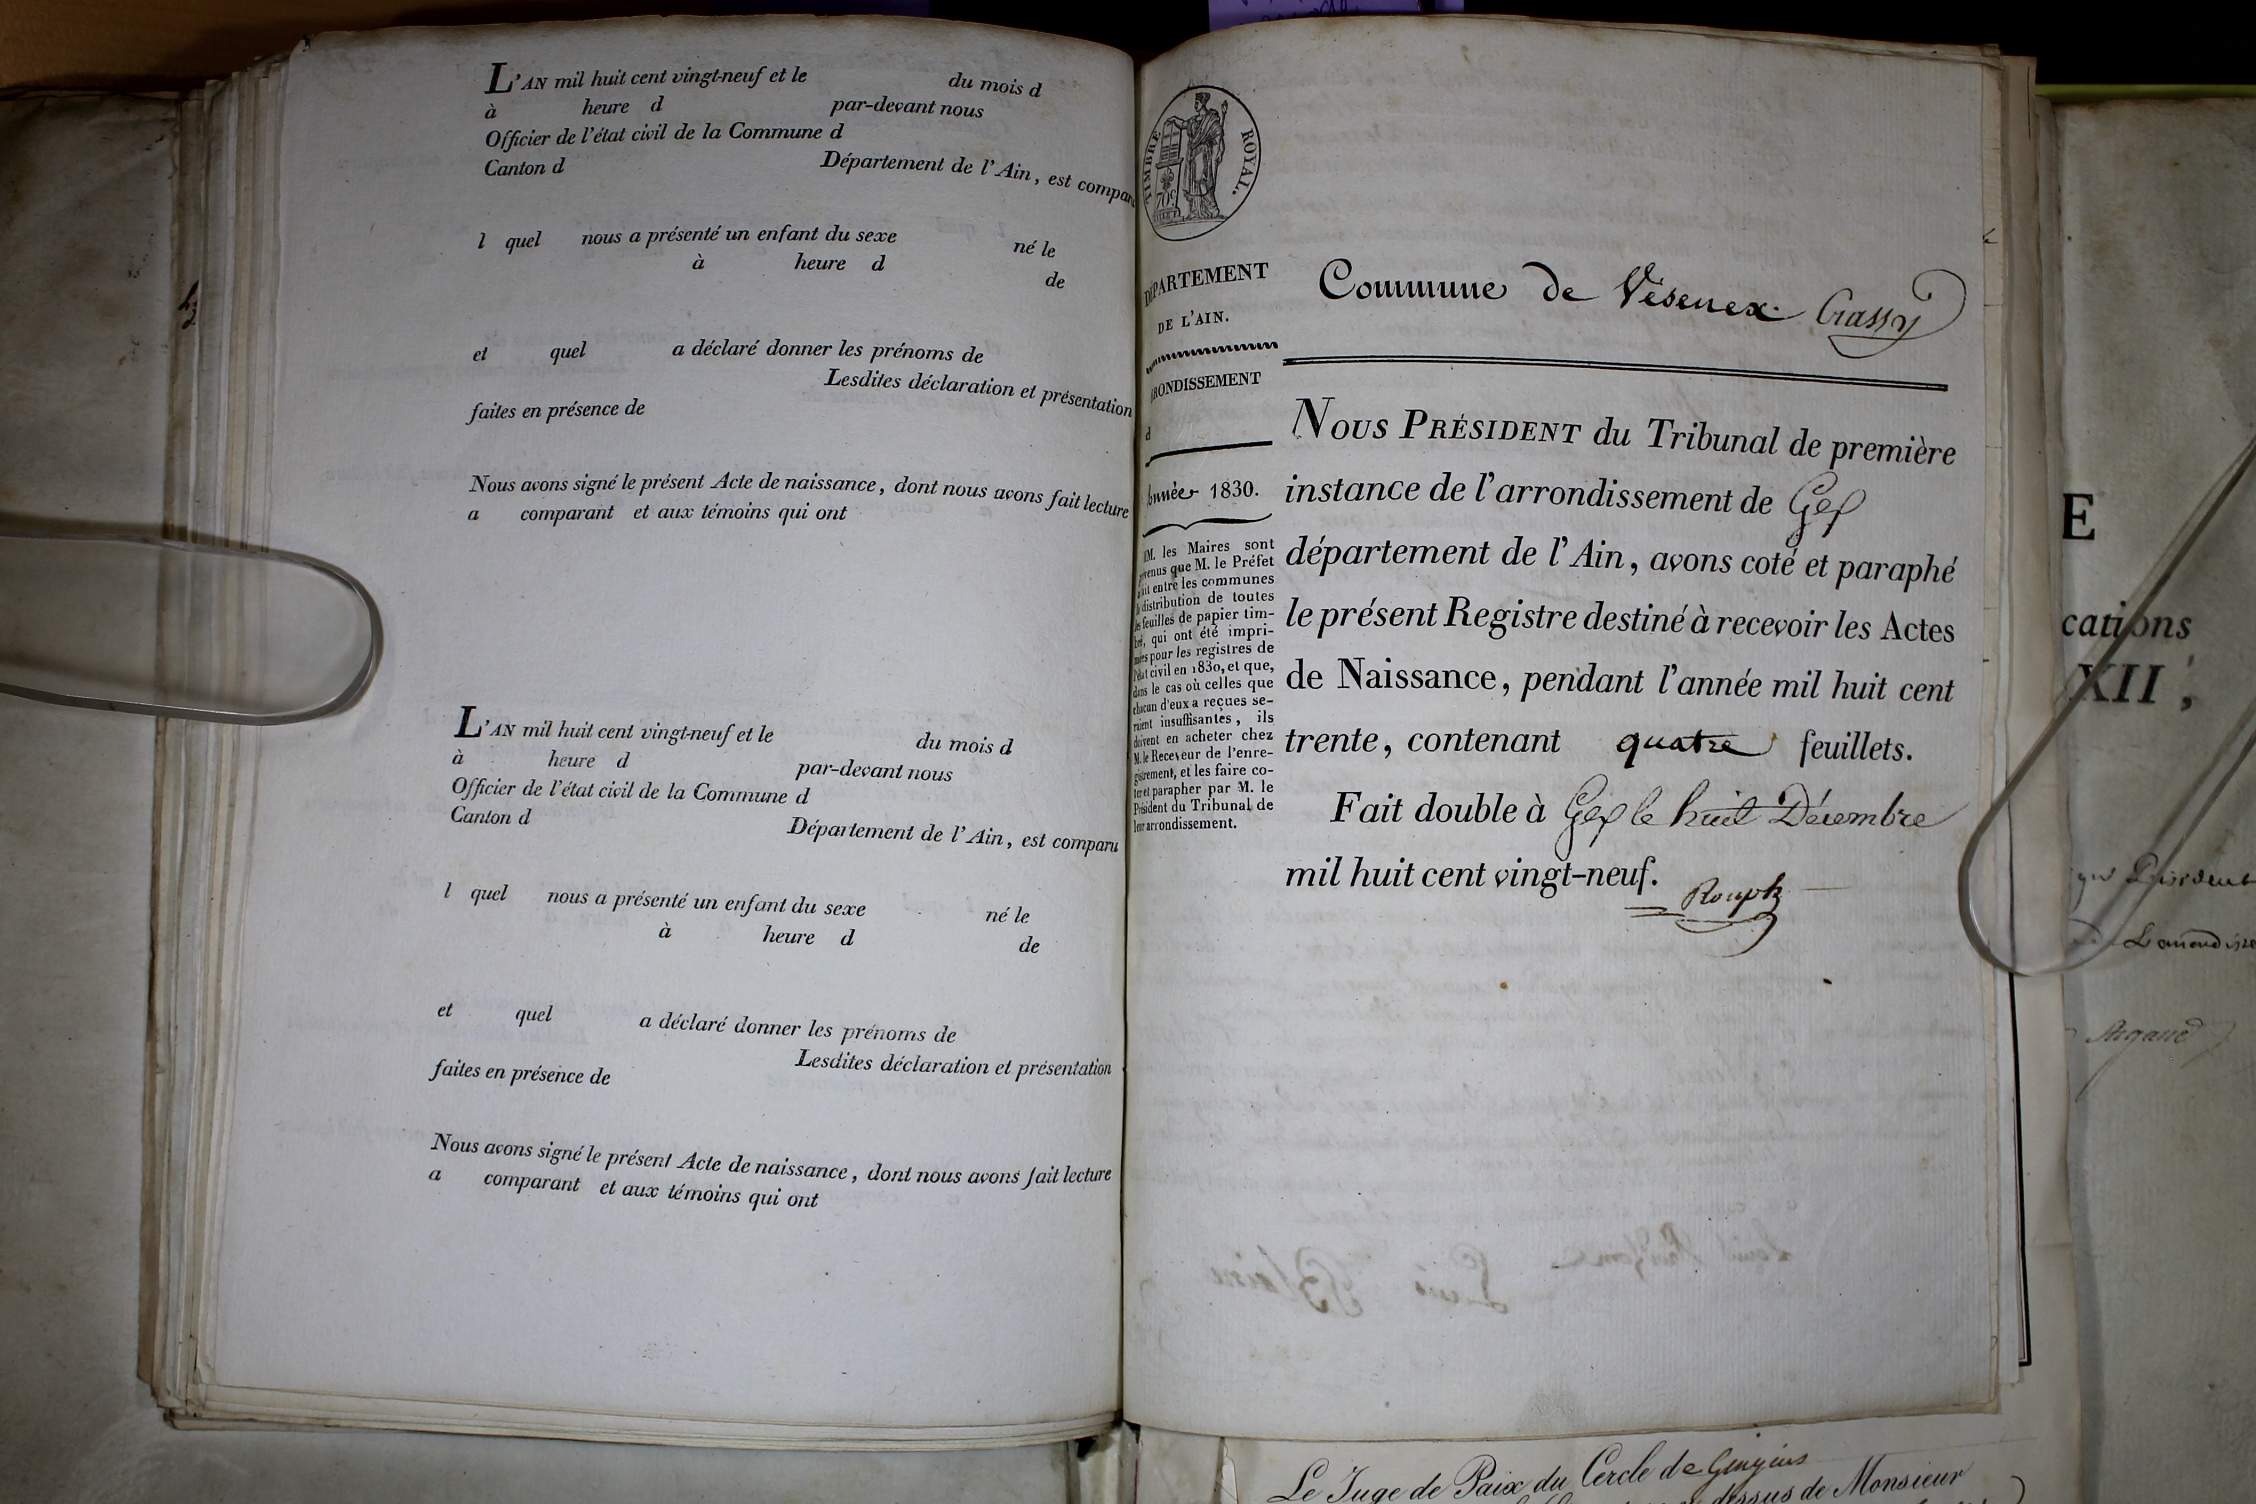 L'AN mil huit cent vingt-neuf et le du mois d
à heure d par-devant nous
Officier de l'état civil de la Commune d
Canton d Département de l'Ain, est comparu
l quel nous a présenté un enfant du sexe né le
à heure d de
et quel a déclaré donner les prénoms de
Lesdites déclaration et présentation
faites en présence de
Nous avons signé le présent Acte de naissance, dont nous avons fait lecture
a comparant et aux témoins qui ont
L'AN mil huit cent vingt-neuf et le du mois d
à heure d par-devant nous
Officier de l'état civil de la Commune d
Canton d Département de l'Ain, est comparu
l quel nous a présenté un enfant du sexe né le
à heure d de
et quel a déclaré donner les prénoms de
Lesdites déclaration et présentation
faites en présence de
Nous avons signé le présent Acte de naissance, dont nous avons fait lecture
a comparant et aux témoins qui ont
TIMBRE ROYAL.
70c
DÉPARTEMENT
DE L'AIN.
ARRONDISSEMENT
d
Année 1830.
MM. les Maires sont
prévenus que M. le Préfet
a fait entre les communes
la distribution de toutes
les feuilles de papier tim-
bré, qui ont été impri-
mées pour les registres de
l'état civil en 1830, et que,
dans le cas où celles que
chacun d'eux a reçues se-
raient insuffisantes, ils
doivent en acheter chez
M. le Receveur de l'enre-
gistrement, et les faire co-
ter et parapher par M. le
Président du Tribunal de
leur arrondissement.
Commune de Vésenex Crassy
NOUS PRÉSIDENT du Tribunal de première
instance de l'arrondissement de Gex
département de l'Ain, avons coté et paraphé
le présent Registre destiné à recevoir les Actes
de Naissance, pendant l'année mil huit cent
trente, contenant quatre feuillets.
Fait double à Gex le huit Décembre
mil huit cent vingt-neuf.
Rouph
E
cations
XII,
Président
Argand
Le Juge de Paix du Cercle de Gingins
dessus de Monsieur